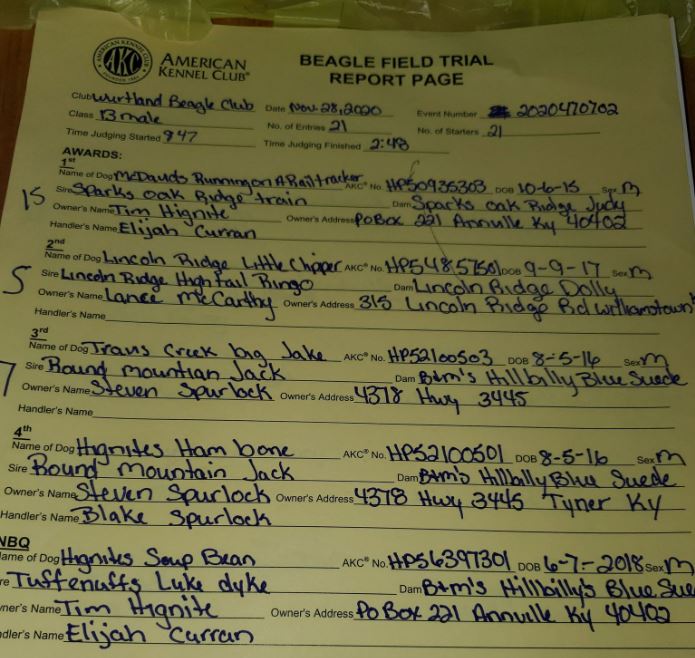 AMERICAN KENNEL CLUB
AKC
FOUNDED 1884
AMERICAN
KENNEL CLUB®
BEAGLE FIELD TRIAL
REPORT PAGE
Club Wurtland Beagle Club Date Nov. 28, 2020 Event Number 2020470702
Class 13 male No. of Entries 21 No. of Starters 21
Time Judging Started 847 Time Judging Finished 2:48
AWARDS:
1st
Name of Dog McDauds Running on A Railtracker AKC® No. HP50935303 DOB 10-6-15 Sex m
15 Sire Sparks oak Ridge train Dam Sparks oak Ridge Judy
Owner's Name Tim Hignite Owner's Address PO Box 221 Annville Ky 40402
Handler's Name Elijah Curran
2nd
Name of Dog Lincoln Ridge Little Chipper AKC® No. HP54857501 DOB 9-9-17 Sex m
5 Sire Lincoln Ridge High tail Ringo Dam Lincoln Ridge Dolly
Owner's Name Lance McCarthy Owner's Address 315 Lincoln Ridge Rd williamstown
Handler's Name
3rd
Name of Dog Travs Creek big Jake AKC® No. HP52100503 DOB 8-5-16 Sex m
7 Sire Round mountian Jack Dam B+m's Hillbilly Blue Suede
Owner's Name Steven Spurlock Owner's Address 4378 Hwy 3445
Handler's Name
4th
Name of Dog Hignites Ham bone AKC® No. HP52100501 DOB 8-5-16 Sex m
Sire Round mountain Jack Dam B+m's Hillbilly Blue Suede
Owner's Name Steven Spurlock Owner's Address 4378 Hwy 3445 Tyner Ky
Handler's Name Blake Spurlock
NBQ
ame of Dog Hignites Soup Bean AKC® No. HP56397301 DOB 6-7-2018 Sex m
re Tuffenuffs Luke dyke Dam B+m's Hillbilly's Blue Sue
ner's Name Tim Hignite Owner's Address PO Box 221 Annville Ky 40402
dler's Name Elijah Curran